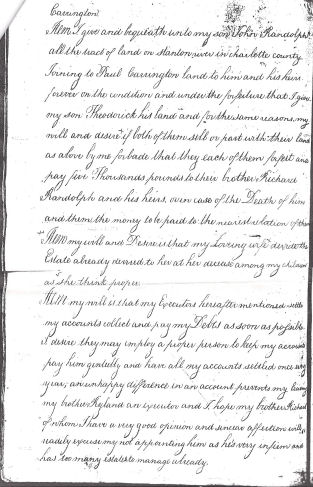 Carrington
Item I give and bequeath unto my son John Randolph
all the tract of land on Stanton river in charlotte county
Joining to Paul Carrington land to him and his heirs
forever on the condition and under the forfeiture that I give
my son Theodorick his land and for the same reasons, my
will and desire if both of them sell or part with their land
as above by me forbade that they each of them forfeit and
pay five Thousands pounds to their brother Richard
Randolph and his heirs, or in case of the Death of him
and them the money to be paid to the nearest relation of them
Item my will and Desire is that my Loving wife devide the
Estate already devised to her at her decease among my children
as she think proper.
Item my will is that my Executors hereafter mentioned settle
my accounts collect and pay my Debts as soon as possible
I desire they may employ a proper person to keep my accounts
pay him genteelly and have all my accounts settled once every
year, an unhappy difference in an account prevents my leaving
my brother Ryland an executor and I hope my brother Richard
of whom I have a very good opinion and sincear affection will
readily excuse my not appointing him as his very infirm and
has too many estates to manage already.